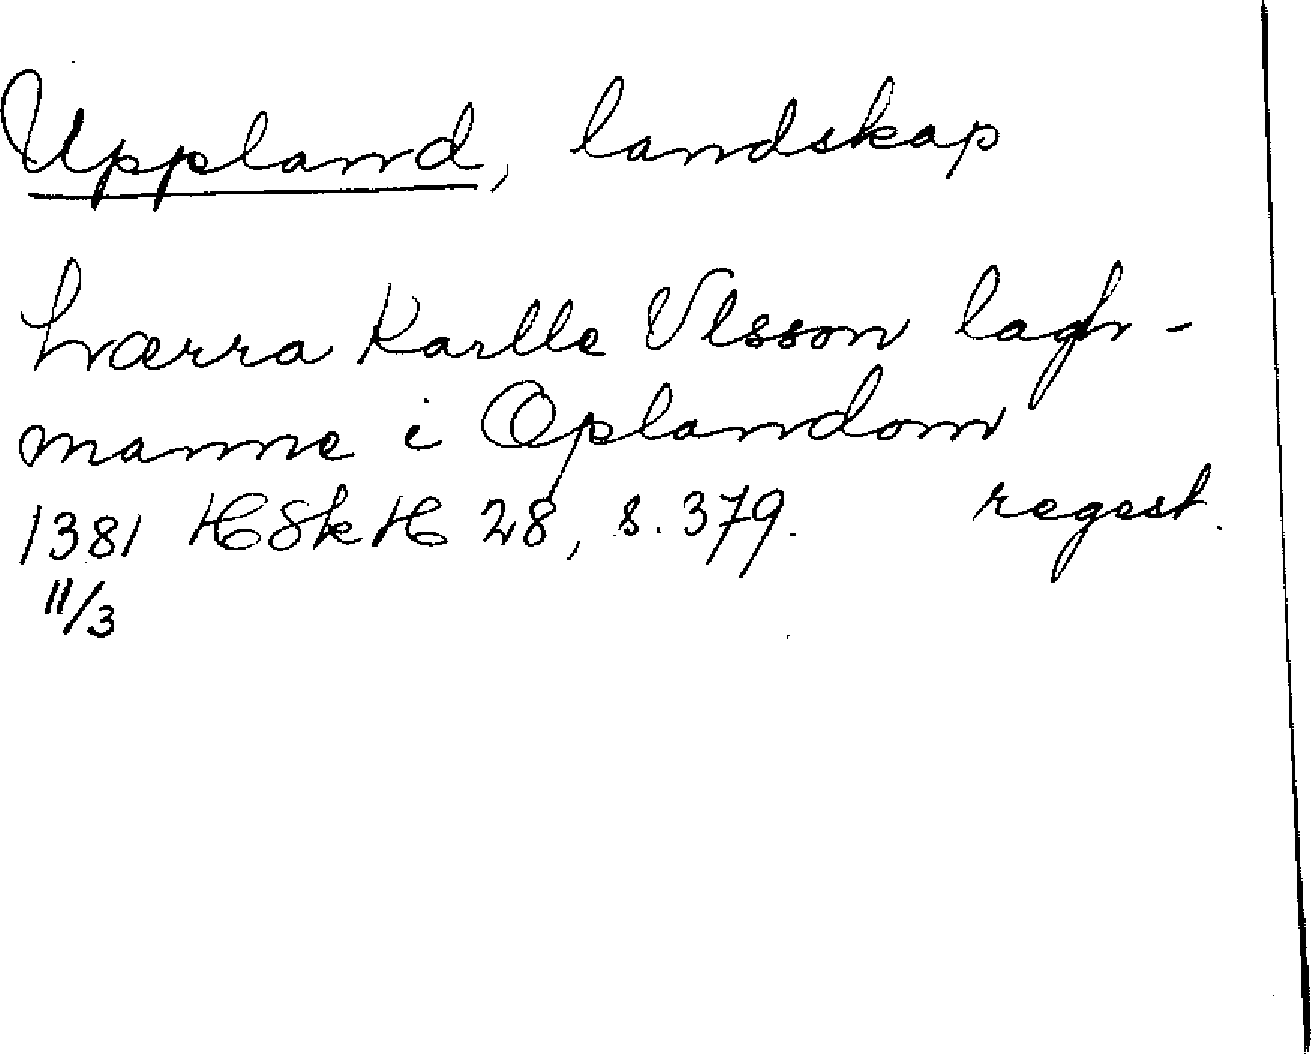 Uppland, landskap
hærra Karlle Vlsson lagh-
manne i Oplandom
1381 HSkH 28, s. 379. regest.
11/3